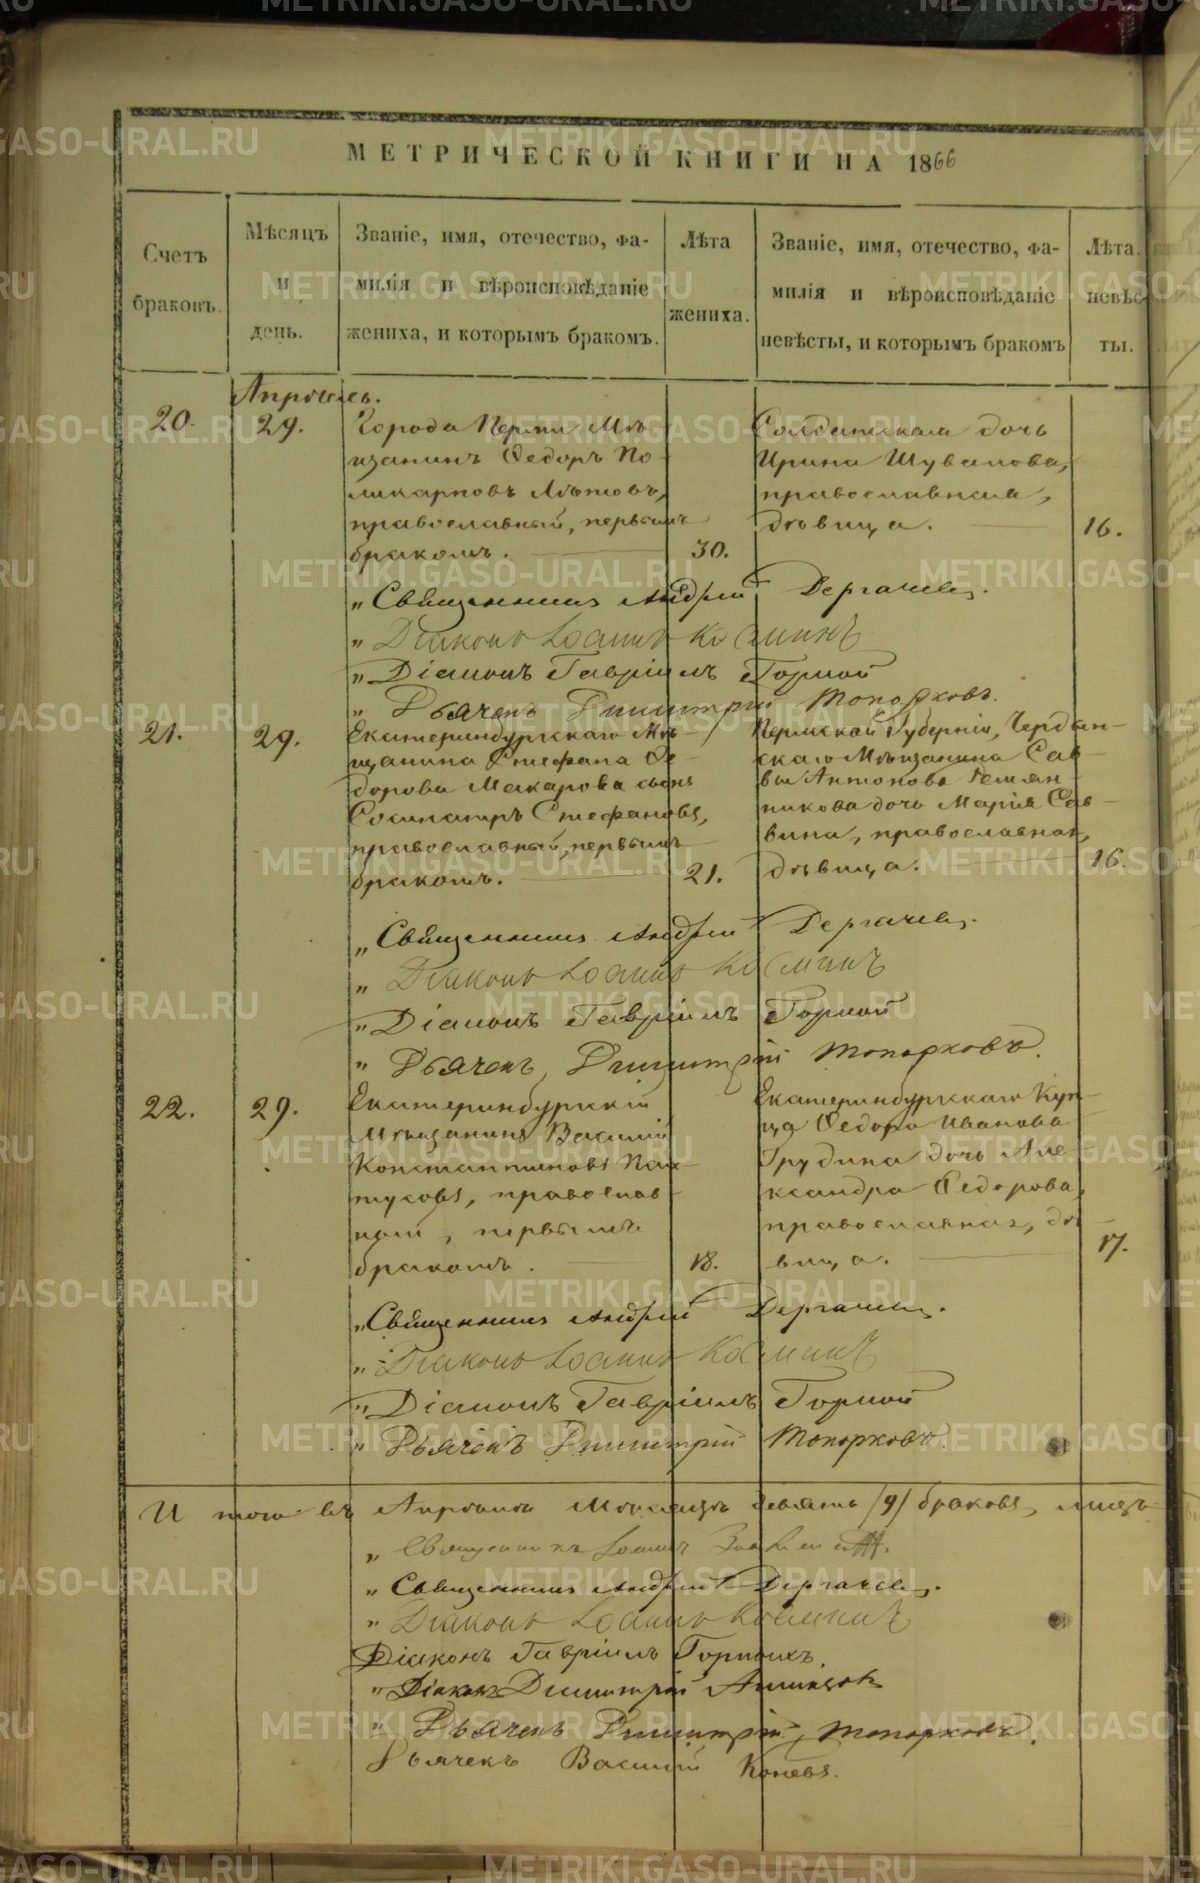 МЕТРИЧЕСКОЙ КНИГИ НА 1866
Счетъ браковъ.
Мѣсяцъ и день.
Званіе, имя, отечество, фа-
милія и вѣроисповѣданіе
жениха, и которымъ бракомъ.
Лѣта жениха.
Званіе, имя, отечество, фа-
милія и вѣроисповѣданіе
невѣсты, и которымъ бракомъ
Лѣта невѣс-
ты.
Апрѣль.
20.
29.
Города Перми Мѣ-
щанинъ Ѳедоръ По-
ликарповъ
православный, первымъ
бракомъ.
30.
Солдатская дочь
Ирина Шувалова,
православная,
дѣвица.
16.
„Священникъ Андрей Дергачевъ.
„Діаконъ Іоаннъ Косминъ
„Діаконъ Гавріилъ Горной
„Дьячекъ Димитрій Топорковъ.
21.
29.
Екатеринбургскаго Мѣ-
щанина Стефана Ѳе-
дорова Макарова сынъ
Сосипатръ Стефановъ,
православный, первымъ
бракомъ.
21.
Пермской Губерніи, Чердын-
скаго Мѣщанина Сав-
вы Антонова
никова дочь Марія Сав-
вина, православная,
дѣвица.
16.
„Священникъ Андрей Дергачевъ.
„Діаконъ Іоаннъ Косминъ
„Діаконъ Гавріилъ Горной
„Дьячекъ Димитрій Топорковъ.
22.
29.
Екатеринбургскій
Мѣщанинъ Василій
Константиновъ
православ-
ной, первымъ
бракомъ.
18.
Екатеринбургскаго Куп-
ца Ѳедора Иванова
Грудина дочь Але-
ксандра Ѳедорова,
православная, дѣ-
вица.
17.
„Священникъ Андрей Дергачевъ.
„Діаконъ Іоаннъ Косминъ
„Діаконъ Гавріилъ Горной
„Дьячекъ Димитрій Топорковъ.
Итого въ Апрѣлѣ Мѣсяцѣ девять /9/ браковъ,
„Священникъ Іоаннъ
„Священникъ Андрей Дергачевъ.
„Діаконъ Іоаннъ Косминъ
Діаконъ Гавріилъ Горныхъ
„Діаконъ Димитрій
„Дьячекъ Димитрій Топорковъ.
Дьячекъ Василій Коневъ.
METRIKI.GASO-URAL.RU